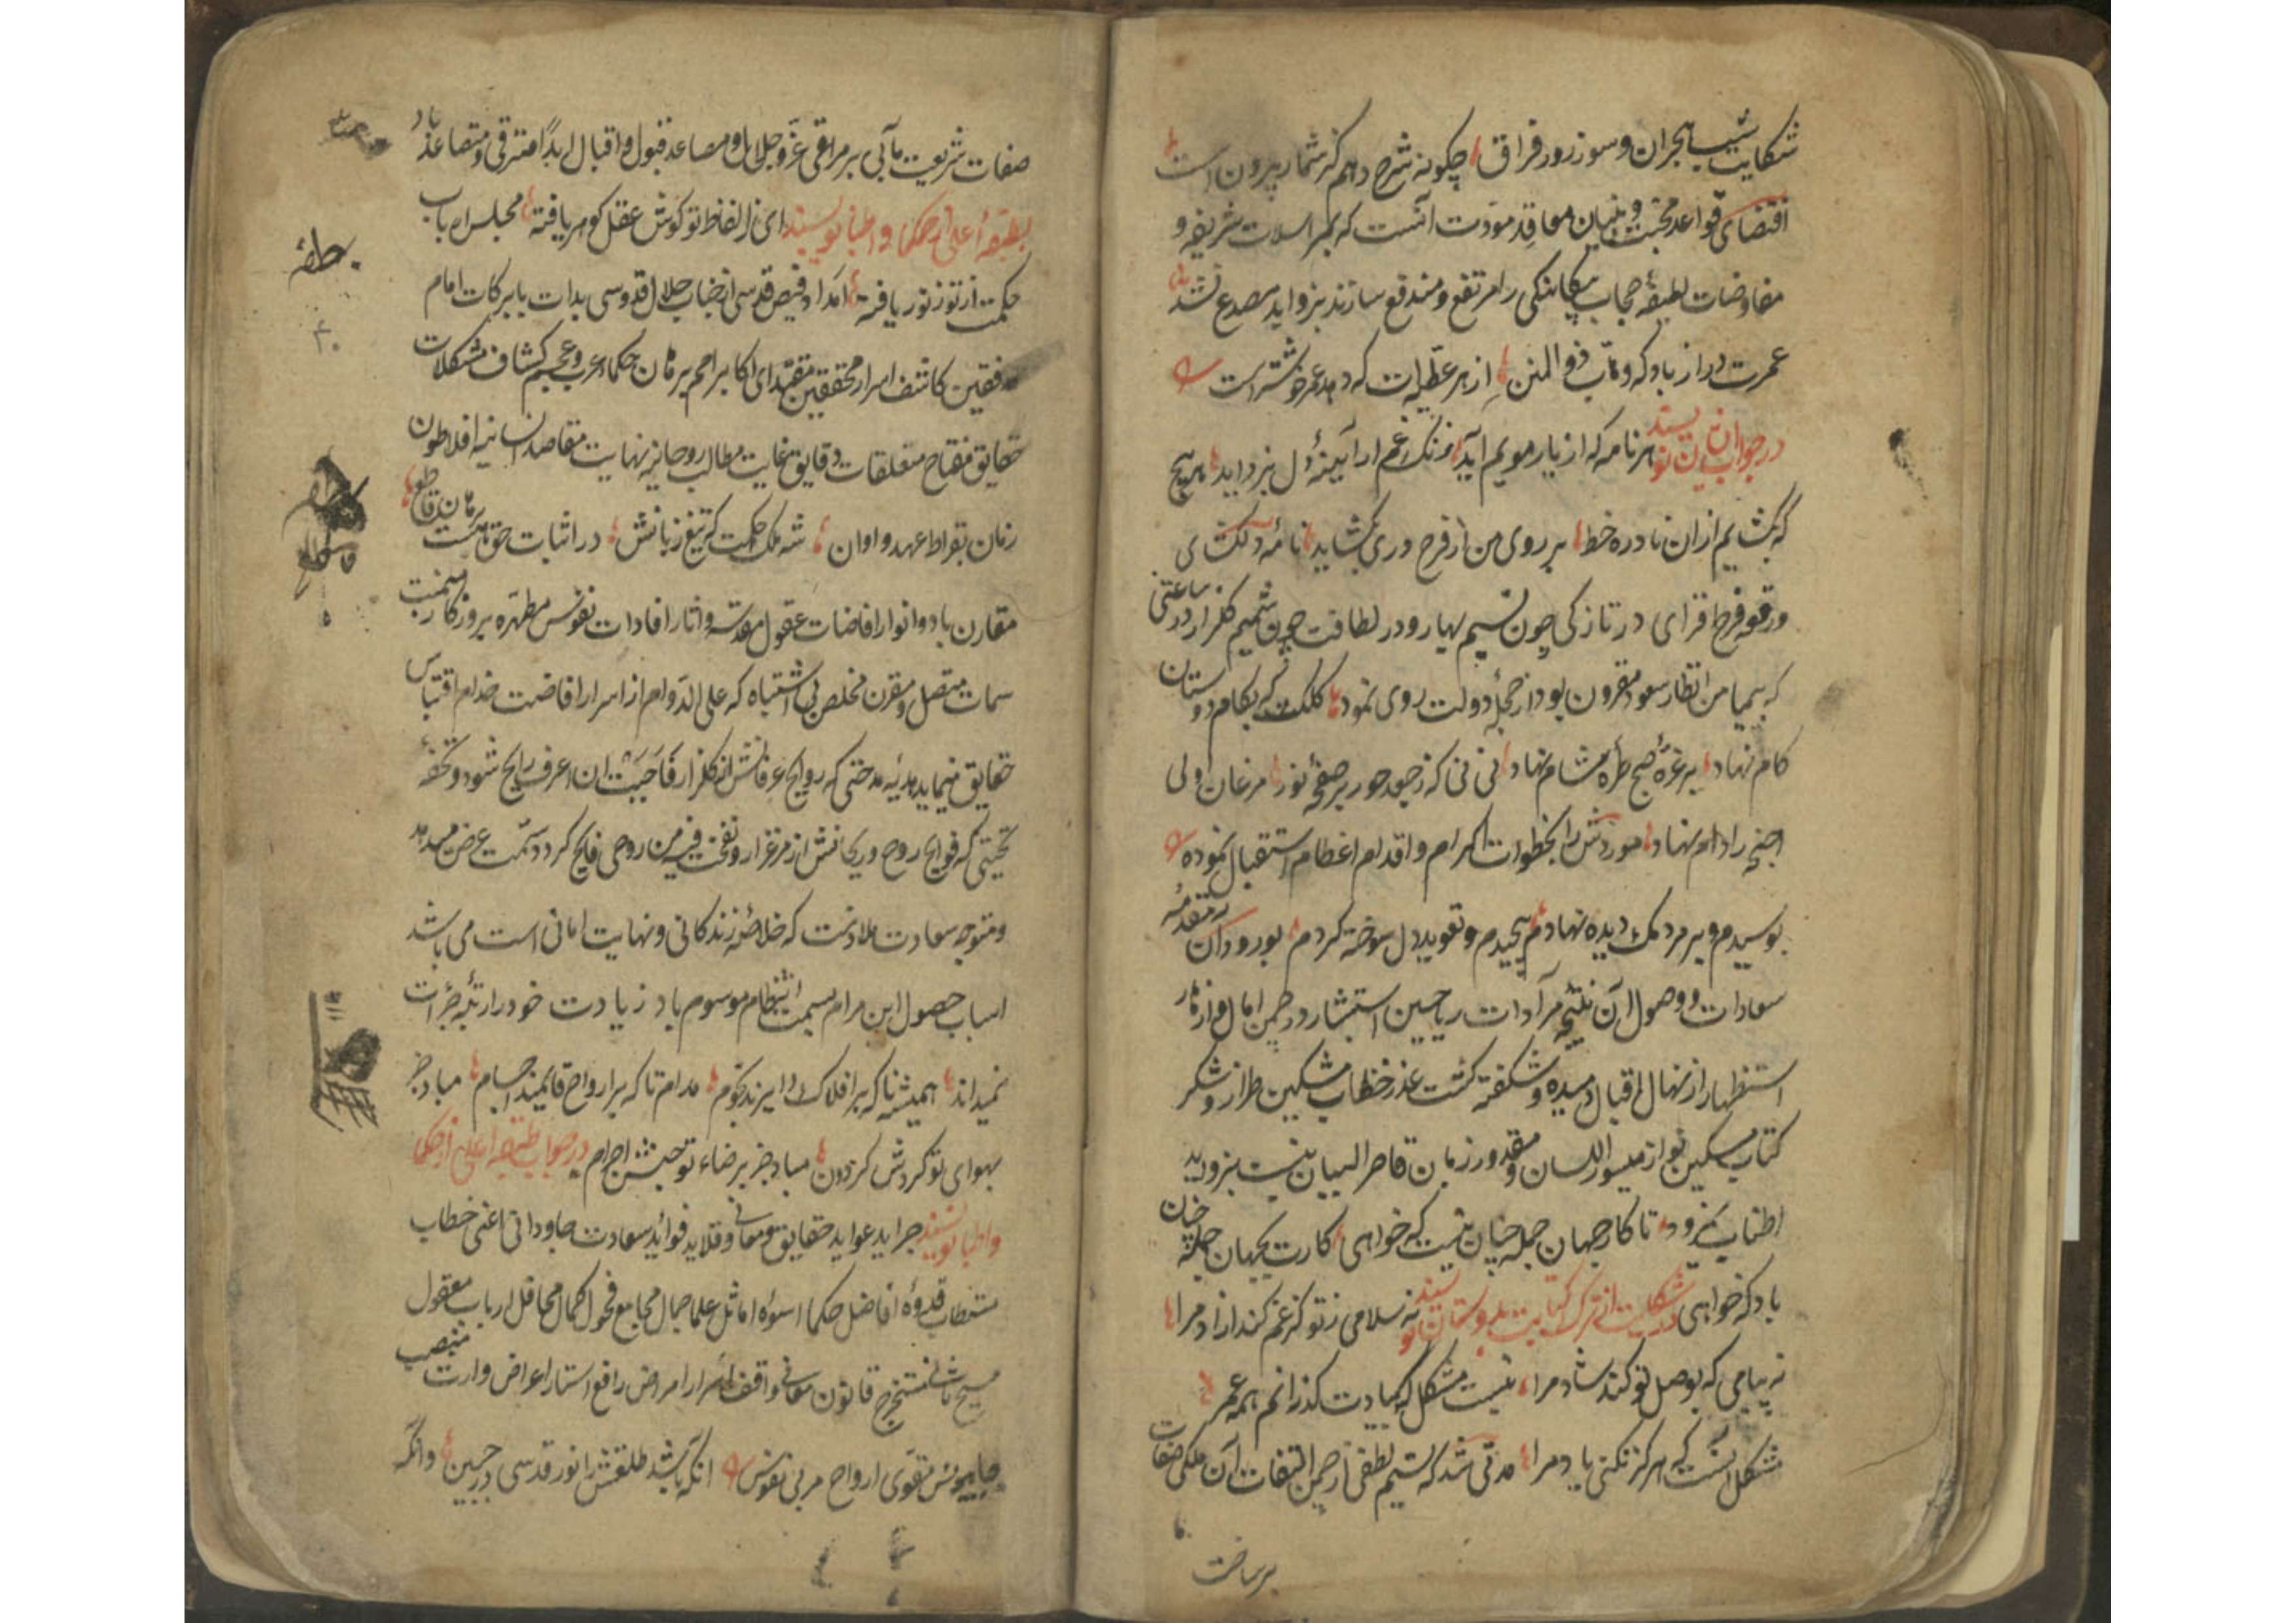 شکایت شبیب هجران و سوز روز فراق چکونه شرح دهم کز شمار بیرون است
اقتضای قواعد محبت و بنیان معاقد مودت آنست که بمراسلات شریفه و
مفاوضات لطیفه حجاب بیکانکی را مرتفع و مندفع سازند بزواید مصدع نشد
عمرت دراز باد که وهاب ذوالمنن از هر عطیه ات که دهد عمر خوشتر است
در جواب این نویسند هر نامه که از یار مویم آید زنک غم از آیینه دل بزداید هر پیچ
که بکشایم از ان نادره خط بر روی من از فرح دری بکشاید نامه دلکشای
ورقعه فرح افزای در تازکی چون نسیم بهار و در لطافت چون شمیم کلزار در ساعتی
که بمیامن انظار سعود مقرون بود از حجله دولت روی نمود کلک که بکام دوستان
کام نهاد بر غره صبح طره شام نهاد نی نی که ز جعد حور بر صفحه نور مرغان اولی
اجنحه را دام نهاد موردش را بخطوات اکرام و اقدام اعظام استقبال نموده
بوسیدم و بر مردمک دیده نهادم پیچیدم و تعوید دل سوخته کردم بورود آن مقدمه
سعادات و وصول آن نتیجه مرادات ریاحین استبشار در چمن امال و ازهار
استظهار از نهال اقبال دمیده و شکفته کشت عذر خطاب مشکین طراز و شکر
کتاب مسکین نواز میسور اللسان و مقدور زبان قاصر البیان نیست بزواید
اطناب نیفزود تا کار جهان جمله چنان نیست که خواهی کارت بجهان جمله چنان
باد که خواهی در شکایت از ترک کتابت بدوستان نویسند نه سلامی ز تو کز غم کند ازاد مرا
نه پیامی که بوصل تو کند شاد مرا نیست مشکل که بیادت کذرانم همه عمر
مشکل اینست که هرکز نکنی یاد مرا مدتی شد که نسیم لطفی از چمن التفات آن ملکی صفات
صفات شریعت مآبی بر مراقی عز و جلال و مصاعد قبول و اقبال ابدا مترقی و متصاعد باد
بطبقه اعلی از حکما و اطبا نویسند ای ز الفاظ تو کوش عقل کوهر یافته مجلس ارباب
حکمت از تو زنور یافته امداد فیض قدسی از جناب جلال قدوسی بذات بابرکات امام
مدققین کاشف اسرار محققین مقتدای اکابر امم برهان حکماء عرب و عجم کشاف مشکلات
حقایق مفتاح متعلقات دقایق غایت مطالب روحانیه نهایت مقاصد انسانیه افلاطون
زمان بقراط عهد و اوان شه ملک حکمت که تیغ زبانش در اثبات حق هست برهان قاطع
مقارن باد و انوار افاضات عقول مقدسه و اثار افادات نفوس مطهره بروزکار میمنت
سمات متصل و مقرن مخلص بی اشتباه که علی الدوام از اسرار افاضت خدام اقتباس
حقایق مینماید هدیه مدحتی که روایح عرفانش از کلزار فاحببت ان اعرف رایح شود و تحفه
تحیتی که فوایح روح و ریحانش از مرغزار و نفخت فیه من روحی فایح کردد سمت عرض میدهد
و متوجه سعادت ملازمت که خلاصه زندکانی و نهایت امانی است می باشد
اسباب حصول این مرام بسمت انتظام موسوم باد زیادت خود را رتبه جرات
نمیداند همیشه تا که بر افلاک دایرند نجوم مدام تا که بر ارواح قایمند اجسام مباد جز
بهوای تو کردش کردون مباد جز برضاء تو جنبش اجرام در جواب طبقه اعلی از حکما
و اطبا نویسند جراید عواید حقایق و معانی و قلاید فواید سعادت جاودانی اعنی خطاب
مستطاب قدوه افاضل حکما اسوه اماثل علما جمال مجامع فحول کمال محافل ارباب معقول
مستخرج قانون معانی واقف اسرار امراض رافع استار اعراض وارث منصب
مقوی ارواح مربی نفوس انکه باشد طلعتش را نور قدسی در جبین وانکه
برساحت